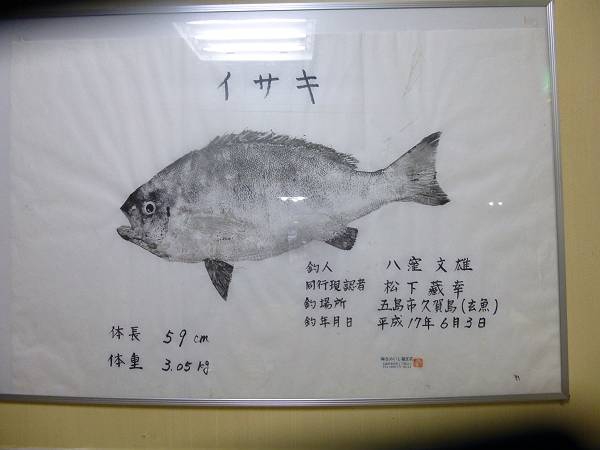 イサキ
釣人 八窪文雄
同行現認者 松下藏幸
釣場所 五島市久賀島(玄魚)
釣年月日 平成17年6月3日
体長 59cm
体重 3.05kg